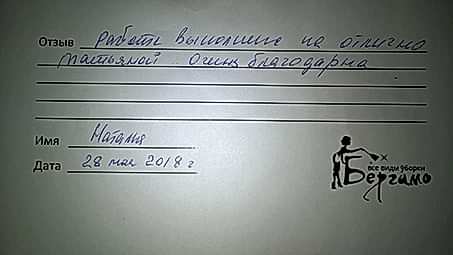 Отзыв Работа выполнено на отлично
Татьяной. Очень благодарна
Имя Наталья
Дата 28 мая 2018 г
все виды уборки
Бергамо